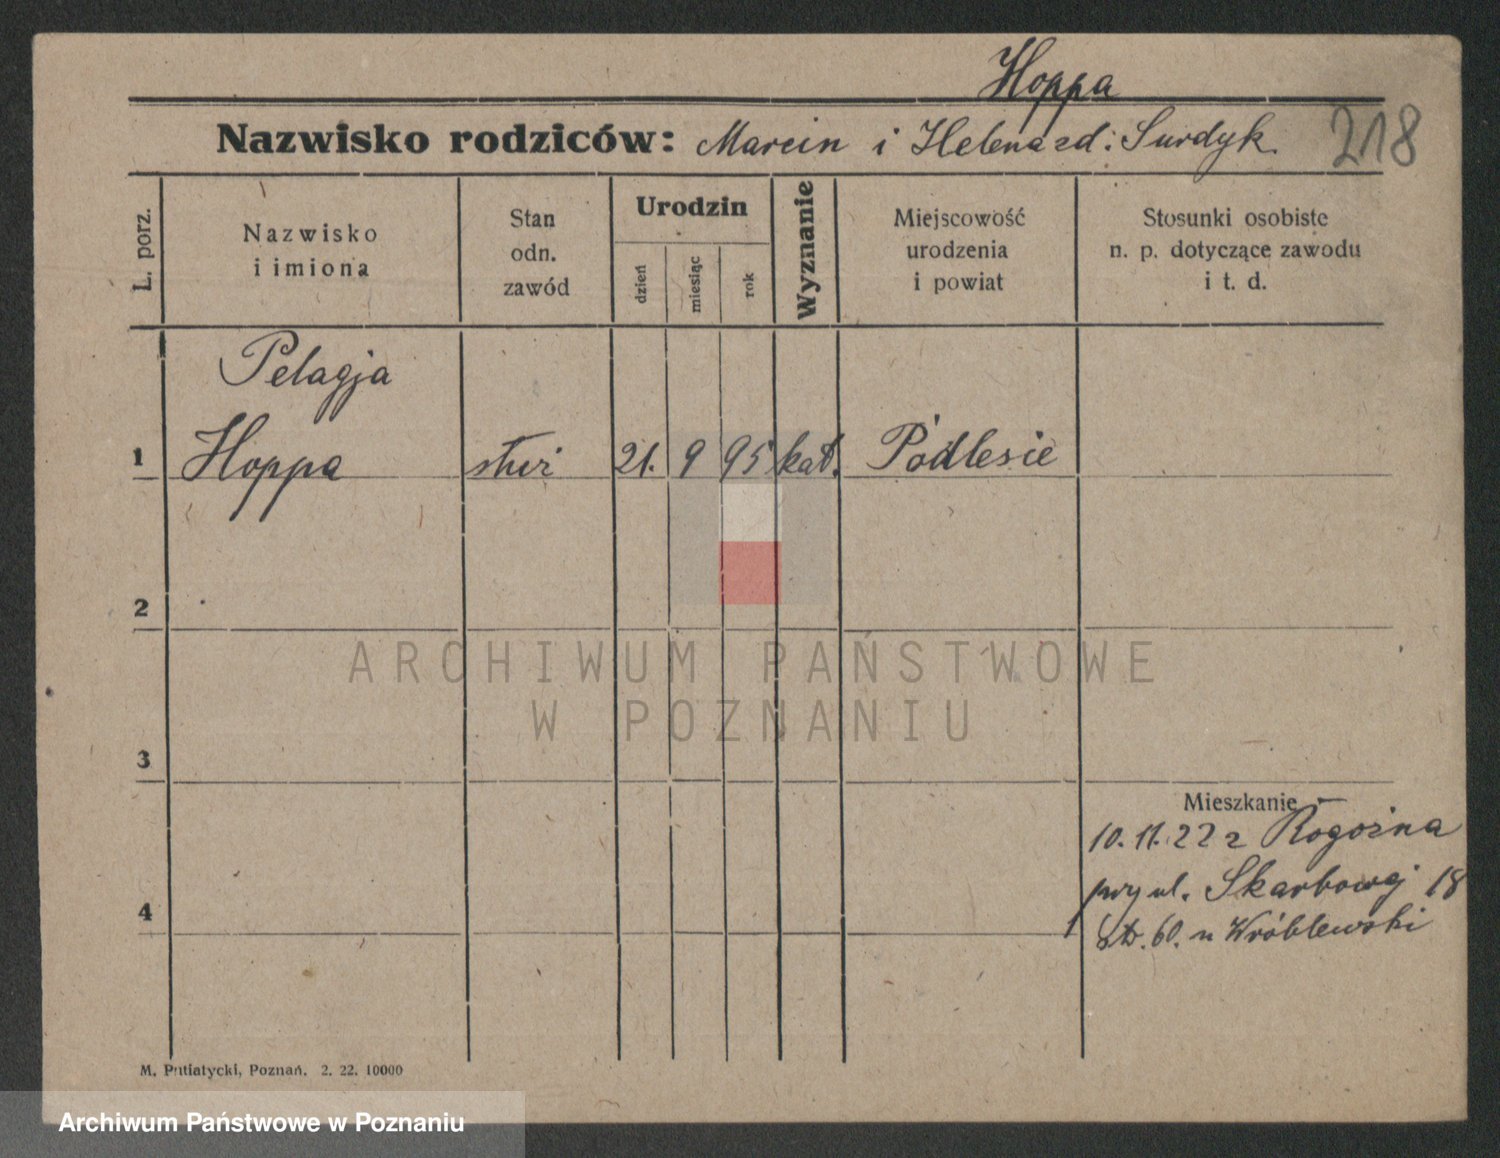 Hoppa
Nazwisko rodziców: Marcin i Helena zd: Surdyk
218
L. porz.
Nazwisko
i imiona
Stan
odn.
zawód
Urodzin
dzień
miesiąc
rok
Wyznanie
Miejscowość
urodzenia
i powiat
Stosunki osobiste
n. p. dotyczące zawodu
i t. d.
Pelagja
1 Hoppa 21. 9 95 kat. Podlesie
2
ARCHIWUM PAŃSTWOWE
W POZNANIU
3
Mieszkanie
10.11.22 z Rogoźna
przy ul. Skarbowej 18
4
60. u Wróblewski
M. Putiatycki, Poznań. 2. 22. 10000
Archiwum Państwowe w Poznaniu